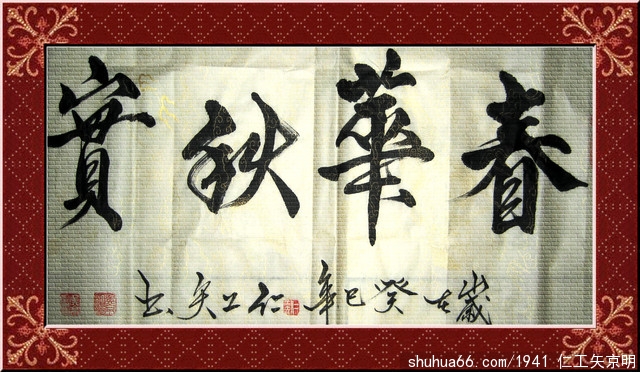 春華秋實
歲在癸巳年仁工矢书
shuhua66.com/1941 仁工矢京明